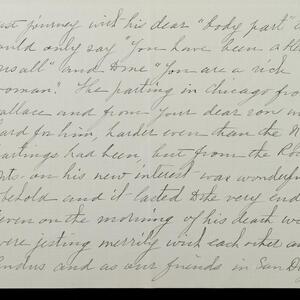 ast journey with his dear "body part" a
ould only say "You have been a
us all" and to me "You are a rich
woman." The parting in Chicago fro
allace and from your dear son w
ard for him, harder even than the N
artings had been, but from the
nts. on his new interest was wonderfu
behold and it lasted to the very end
even on the morning of his death we
were jesting merrily with each other an
and as our friends in San D